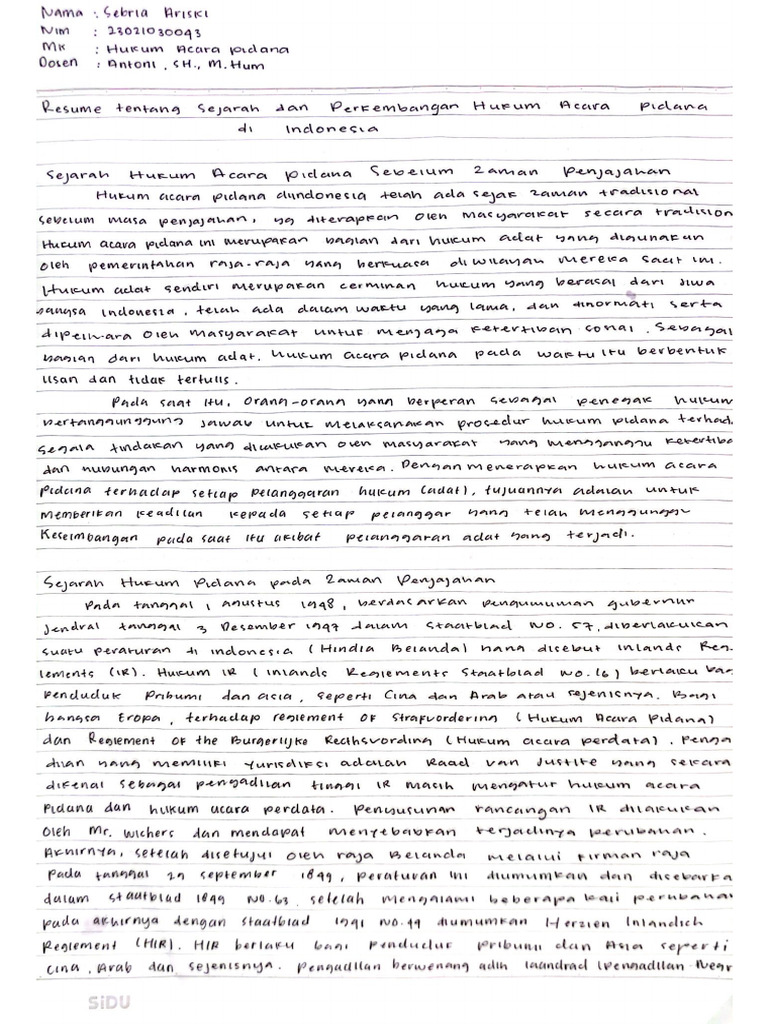 Nama : Sebria Ariski
Nim : 23021030043
Mk : Hukum Acara pidana
Dosen : Antoni, SH., M.Hum
Resume tentang Sejarah dan Perkembangan Hukum Acara pidana
di Indonesia
Sejarah Hukum Acara pidana Sebelum Zaman Penjajahan
Hukum acara pidana diindonesia telah ada sejak zaman tradisional
sebelum masa penjajahan, yg diterapkan oleh masyarakat secara tradision
Hukum acara pidana ini merupakan bagian dari hukum adat yang digunakan
oleh pemerintahan raja-raja yang berkuasa diwilayah mereka saat ini.
Hukum adat sendiri merupakan cerminan hukum yang berasal dari jiwa
bangsa Indonesia, telah ada dalam waktu yang lama, dan dinormati serta
dipelihara oleh masyarakat untuk menjaga ketertiban sosial. Sebagai
bagian dari hukum adat, hukum acara pidana pada waktu itu berbentuk
lisan dan tidak tertulis.
Pada saat itu, orang-orang yang berperan sebagai penegak hukum
bertanggunggung jawab untuk melaksanakan prosedur hukum pidana terhad
segala tindakan yang dilakukan oleh masyarakat yang mengganggu ketertiba
dan hubungan harmonis antara mereka. Dengan menerapkan hukum acara
pidana terhadap setiap pelanggaran hukum (adat), tujuannya adalah untuk
memberikan keadilan kepada setiap pelanggar yang telah menggunggu
keseimbangan pada saat itu akibat pelanggaran adat yang terjadi.
Sejarah Hukum Pidana pada Zaman Penjajahan
Pada tanggal 1 Agustus 1948, berdasarkan pengumuman gubernur
jendral tanggal 3 Desember 1947 dalam Staatblad No. 57, diberlakukan
suatu peraturan di indonesia (Hindia Belanda) yang disebut Inlands Reg
lements (IR). Hukum IR (Inlands Reglements Staatblad No. 16) berlaku bag
penduduk pribumi dan asia, seperti Cina dan Arab atau sejenisnya. Bagi
bangsa Eropa, terhadap reglement OF Strafvordering (Hukum Acara Pidana)
dan Reglement OF the Burgerlijke Recthsvording (Hukum acara perdata). Penga
dilan yang memiliki yurisdiksi adalah Raad van Justite yang sekara
dikenal sebagai pengadilan tinggi IR masih mengatur hukum acara
pidana dan hukum acara perdata. Penyusunan rancangan IR dilakukan
oleh Mr. Wichers dan mendapat menyebabkan terjadinya perubahan.
Akhirnya, setelah disetujui oleh raja Belanda melalui firman raja
pada tanggal 29 september 1849, peraturan ini diumumkan dan disebarka
dalam staatblad 1849 No.63. setelah mengalami beberapa kali perubahan
pada akhirnya dengan Staatblad 1941 No.44 diumumkan Herzien Inlandich
Reglement (HIR). HIR berlaku bagi penduduk pribumi dan Asia seperti
Cina, Arab dan sejenisnya. Pengadilan berwenang adlh laandrad (pengadilan Negr
SiDU